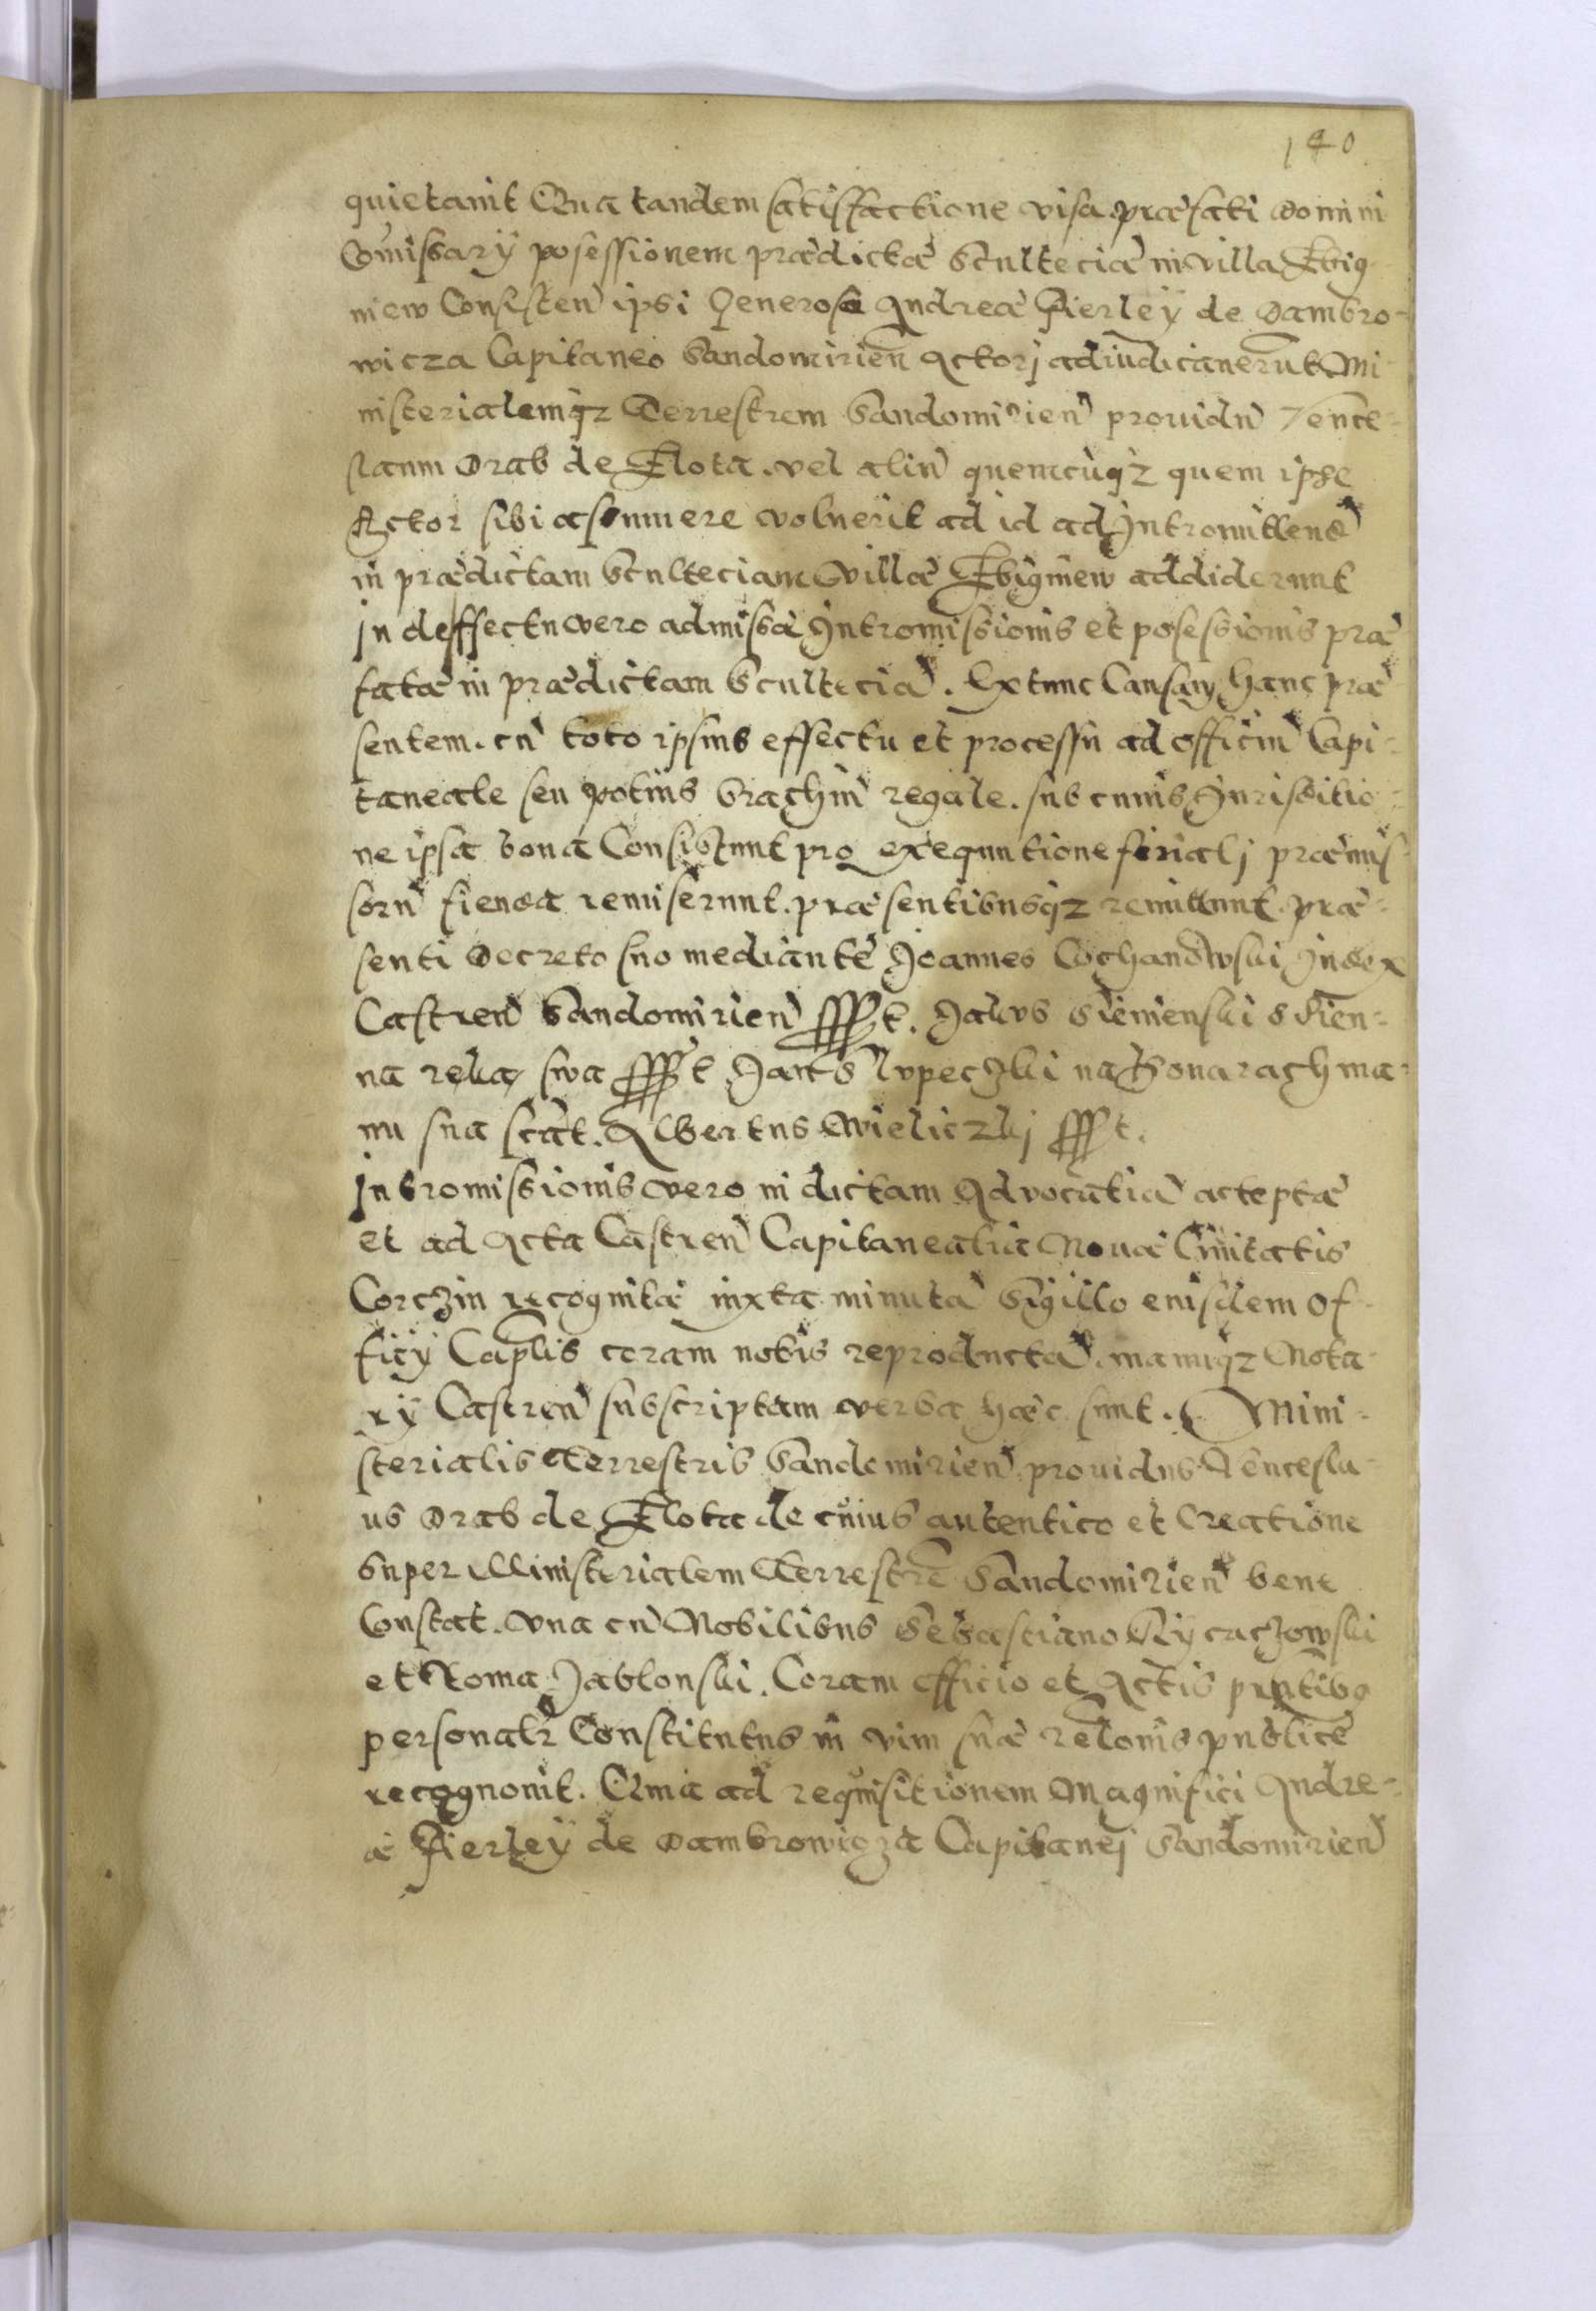 140
quietauit Qua tandem satisfactione visa præfati domini
Com̃issarÿ posessionem prædictæ Scultecie in villa Zbig-
niew Consisten̄ ipsi Generoso Andreæ Fierleÿ de Dambro-
wicza Capitaneo Sandomirien̄ Actorj adiudicauerūt Mi-
nisterialemqz Terrestrem Sandomirien̄ prouidū Vence-
slaum Drab de Zlota. vel aliū quemcūqz quem ipse
Actor sibi assumere voluerit ad id ad Intromittend̄
in prædictam Sculteciam Villæ Zbigniew addiderunt
In deffectu vero admissæ Intromissionis et posessionis præ
fatæ in prædictam Sculteciā. Extunc Causam hanc præ
sentem. cū toto ipsius effectu et processu ad officiū Capi-
taneale seu potius brachiū regale. sub cuius Jurisditio-
ne ipsa bona Consistunt pro exequutione finalj præmis-
sorū fienda remiserunt. præsentibusqz remittunt. præ-
senti Decreto suo mediante Joannes Cochanowski Judex
Castren̄ Sandomirien̄ ssst. Jakvb Siemienski s Sien-
na reka swa ssst Jan S Lvpeczki na Gonarach ma-
nu sua scāt. Albertus Wieliczkj ssst.
Intromissionis vero in dictam Advocatiā acceptæ
et ad Acta Castren̄ Capitanealia Nouæ Ciuitatis
Corczin recognitæ iuxta minutā Sigillo eiusdem Of-
ficÿ Capl̄is coram nobis reproductā. manuqz Nota-
rÿ Castren̄ subscriptam verba hæc sunt. Mini-
sterialis Terrestris Sandomirien̄ prouidus Vencesla-
us Drab de Zlota de cuius autentico et Creatione
super Ministerialem Terrestrē Sandomirien̄ bene
Constat. vna cū Nobilibus Sebastiano Rÿcaczowski
et Toma Jablonski. Coram officio et Actis pn̄tibs
personalr̄ Constitutus in vim suæ rel̄onis publice
recognouit. Quia ad requisitionem Magnifici Andre-
æ Fierleÿ de Dambrowicza Capitanej Sandomirien̄